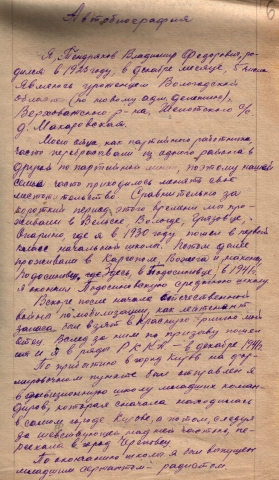 6
Автобиография
Я, Тендряков Владимир Федорович, ро-
дился в 1923 году, в декабре месяце, 5 числа
Являюсь уроженцем Вологодской
области (по новому адм. делению),
Верховажского р-на, Шелотского с/с
д. Макаровская.
Моего отца как партийного работника
часто перебрасывали из одного района в
другой по партийной линии, поэтому нашей
семье часто приходилось менять свое
местожительство. Сравнительно за
короткий период этого времени мы про-
живали в Вельске, Вологде, Грязовце,
Опарино, где я в 1930 году пошел в первый
класс начальной школы. Потом далее
проживали в Каргополе, Вожега и наконец
Подосиновец, где здесь, в Подосиновце, в 1941 г.
я окончил Подосиновскую среднюю школу.
Вскоре после начала отечественной
войны по мобилизации, как лейтенант
запаса был взят в Красную Армию мой
отец. Вслед за ним по призыву пошел
и я в ряды РККА в декабре 1941 г.
По прибытию в город Киров на фор-
мировочном пункте был отправлен я
в дивизионную школу младших коман-
диров, которая сначала находилась
в самом городе Кирове, а потом, следуя
за шефствующей над ней частью, пе-
реехала в город Череповец.
По окончанию школы я был выпущен
младшим сержантом - радистом.